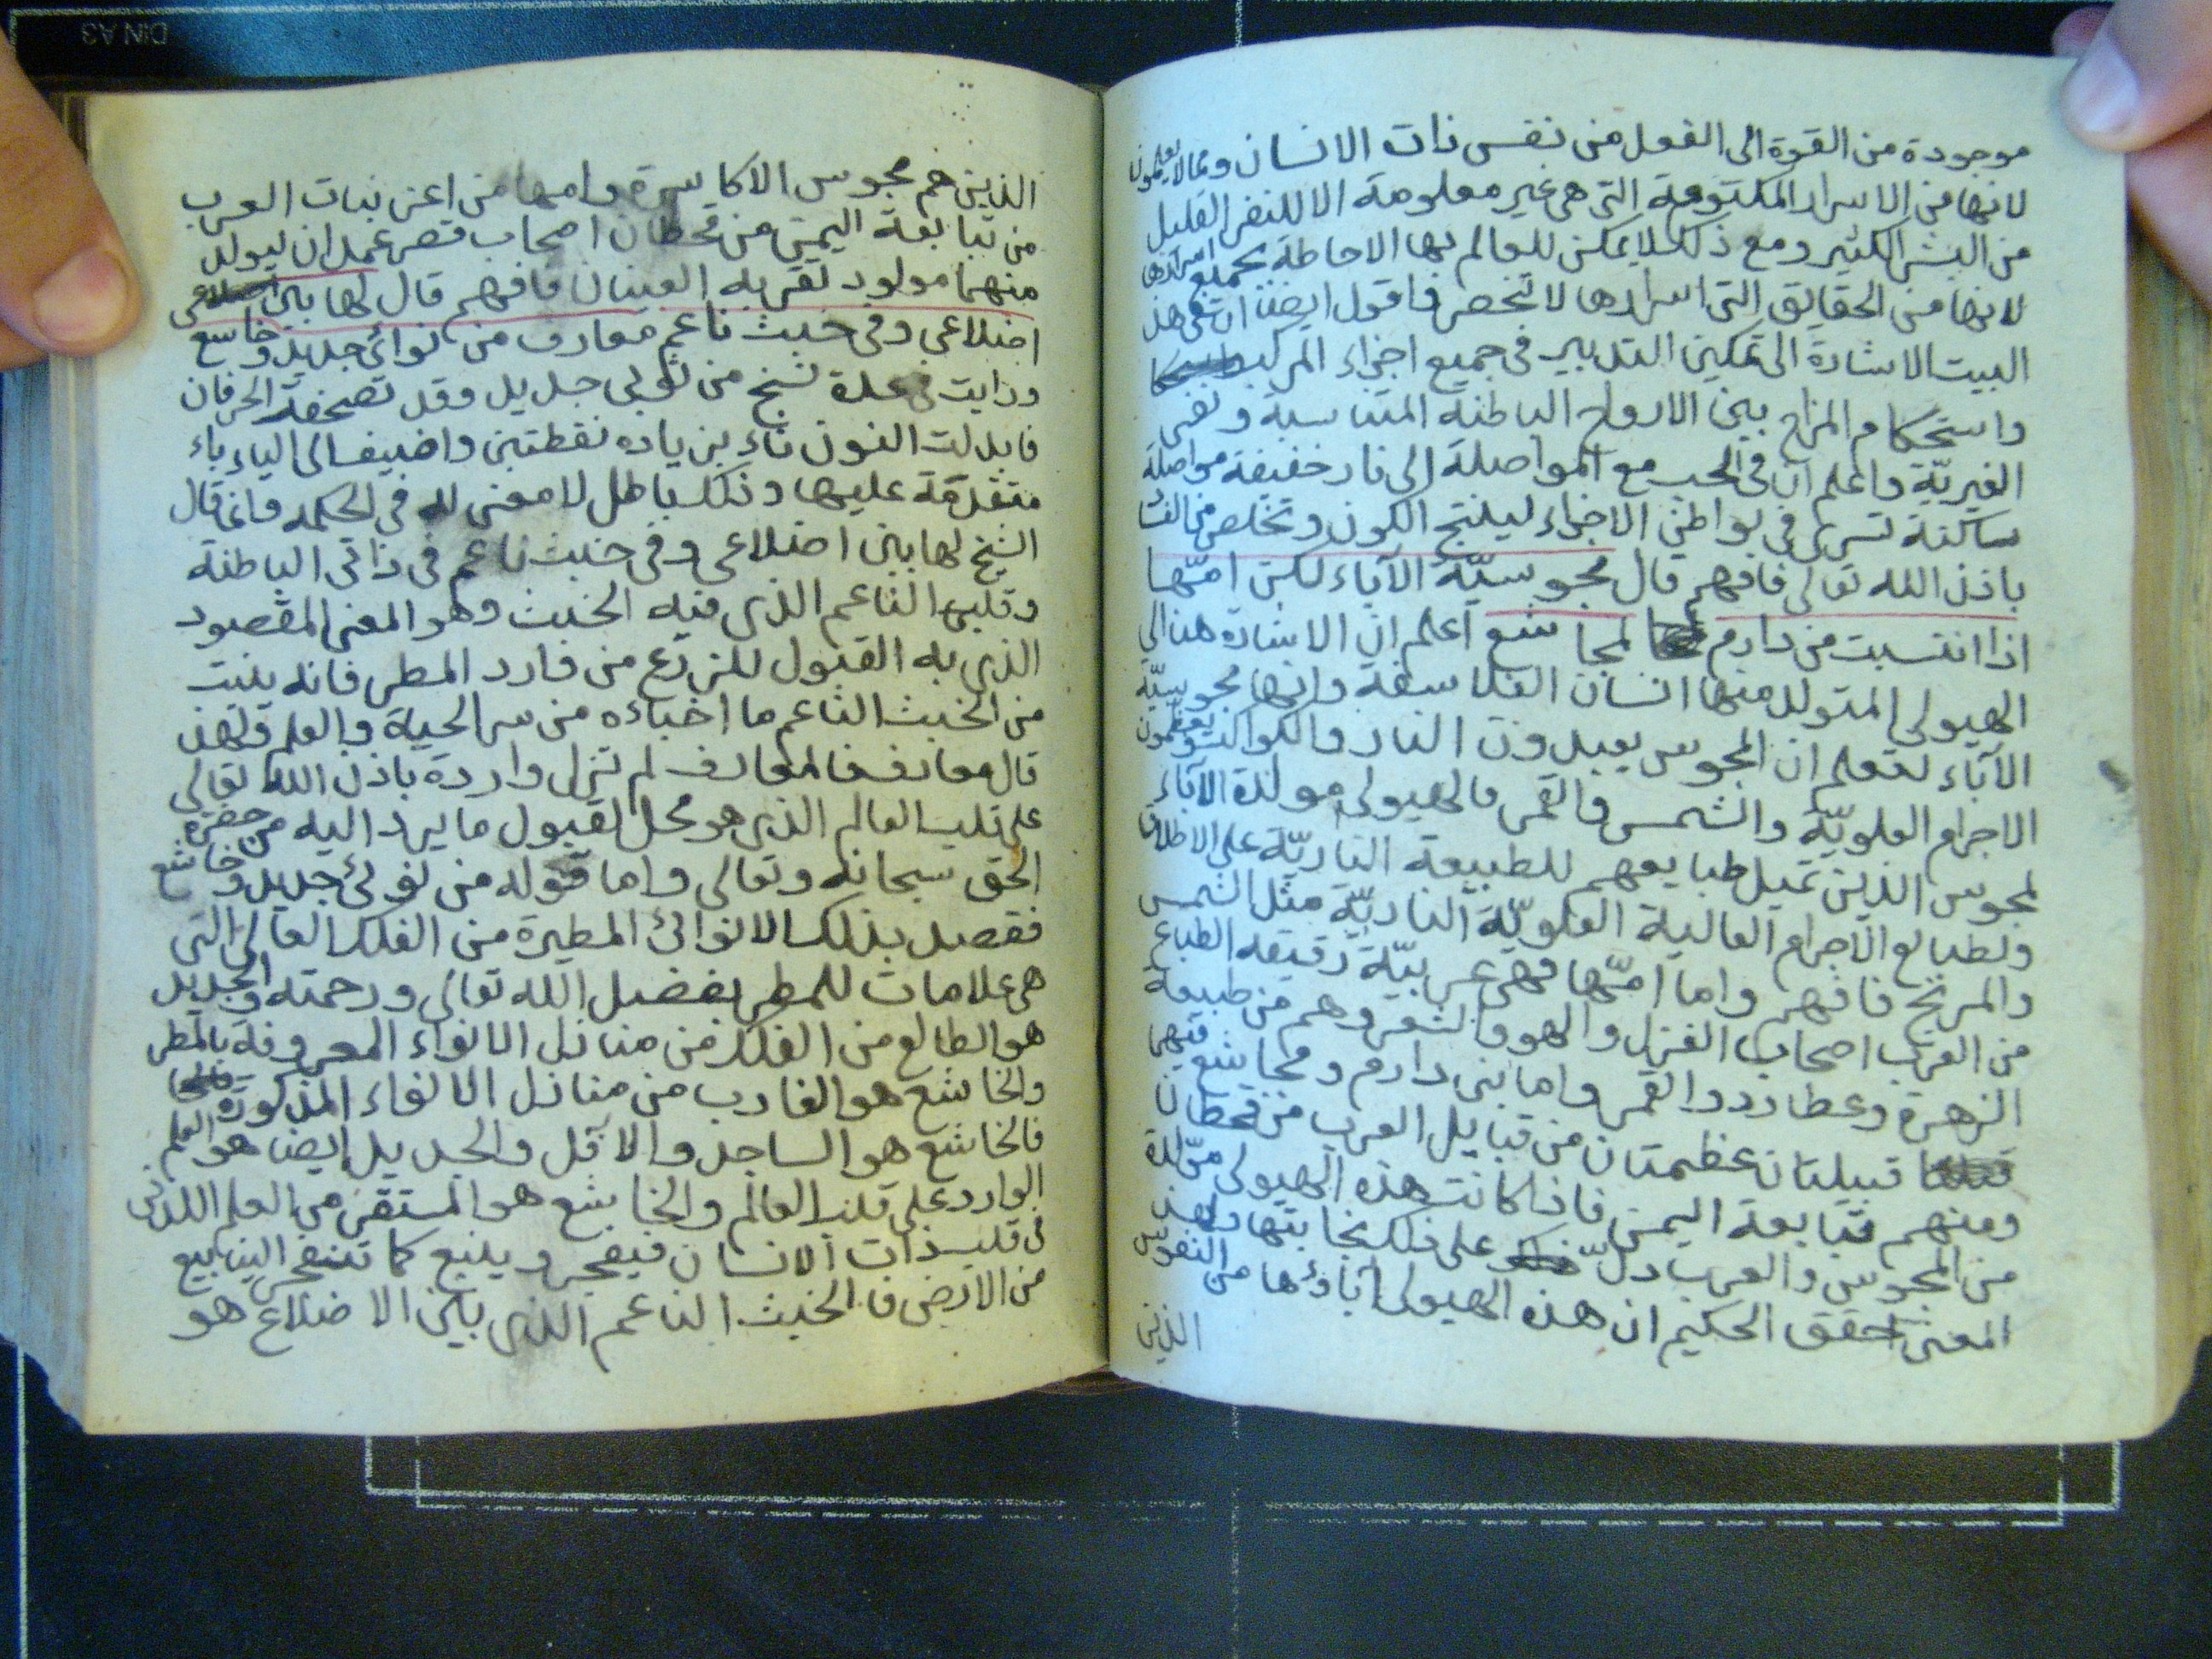 موجودة من القوة الى الفعل من نفس ذات الانسان ومما لا يعلمون
لانها من الاسرار المكتومة التى هى غير معلومة الا للنفر القليل
من البشر الكثير ومع ذلك لا يمكن للعالم بها الاحاطة بجميع اسرارها
لانها من الحقايق التى اسرارها لا تنحصر فاقول ايضا ان فى هذ
البيت الاشارة الى تمكين التدبير فى جميع اجزاء المركب
واستحكام المزاج بين الارواح الباطنة المتناسبة ونفى
الغيريّة واعلم ان فى الحب مع المواصلة الى نار خفيفة مواصلة
ساكنة تسرى فى بواطن الاجزاء لينتج الكون وتخلص من الفسا
باذن الله تعالى فافهم قال مجوسيّة الآباء لكن امّها
اذا انتسبت من دارم لمجاشع اعلم ان الاشارة هنا الى
الهيولى المتولد منها انسان الفلاسفة وانها مجوسيّة
الآباء لتعلم ان المجوس يعبدون النار والكواكب ويعظمون
الاجرام العلويّة والشمس والقمر والهيولى مولدة الآباء
لمجوس الذين تميل طبايعهم للطبيعة الناريّة على الاطلاق
ولطبايع الاجرام العالية العلويّة الناريّة مثل الشمس
والمريخ فافهم واما امّها فهى عربيّة رقيقة الطباع
من العرب اصحاب الغزل والهو والشعر وهم من طبيعة
الزهرة وعطارد والقمر واما بنى دارم ومجاشع فهى
قبيلتان عظيمتان من قبايل العرب من قحطان
ومنهم تبابعة اليمن فاذا كانت هذه الهيولى مولّدة
من المجوس والعرب دلّ على ذلك نجابتها ولهذ
المعنى حقق الحكيم ان هذه الهيولى آباؤها من النفوس
الذين
الذين هم مجوس الاكاسرة وامها من اعز بنات العرب
من تبابعة اليمن من قحطان اصحاب قصر غمدان ليولد
منهما مولود تقر به العينان فافهم قال لها بين
اضلاعى وفى خبث ناعم معارف من نوائ جديد وخاشع
ورايت فى عدة نسخ من نوبى جديل وقد تصحفة الحرفان
فابدلت النون تاء بزيادة نقطتين واضيف الى الياء باء
متقدمة عليها وذلك باطل لا معنى له فى الحكمه وانما قال
الشيخ لها بين اضلاعى وفى خبث ناعم فى ذاتى الباطنة
وقلبها الناعم الذى فيه الخبث وهو المعنى المقصود
الذى به القبول للزرع من وارد المطر فانه ينبت
من الخبث الناعم ما اخباءه من سر الحياة والعلم ولهذ
قال معارف فالمعارف لم تزل واردة باذن الله تعالى
على قلب العالم الذى هو محل لقبول ما يرد اليه من حضرة
الحق سبحانه وتعالى واما قوله من نوئ جديد وخاشع
فقصد بذلك الانوائ المطيرة من الفلك العالى التى
هى علامات للمطر بفضل الله تعالى ورحمته والجديد
هو الطالع من الفلك من منازل الانواء المعروفة بالمطر
والخاشع هو الغارب من منازل الانواء المذكورة
فالخاشع هو الساجد والافل والجديد ايضا هو العلم
الوارد على قلب العالم والخاشع هو المستقر من العلم اللدنى
فى قلب ذات الانسان فيفجر وينبع كما تنفجر الينابيع
من الارض فالخبث الناعم الذى بين الاضلاع هو